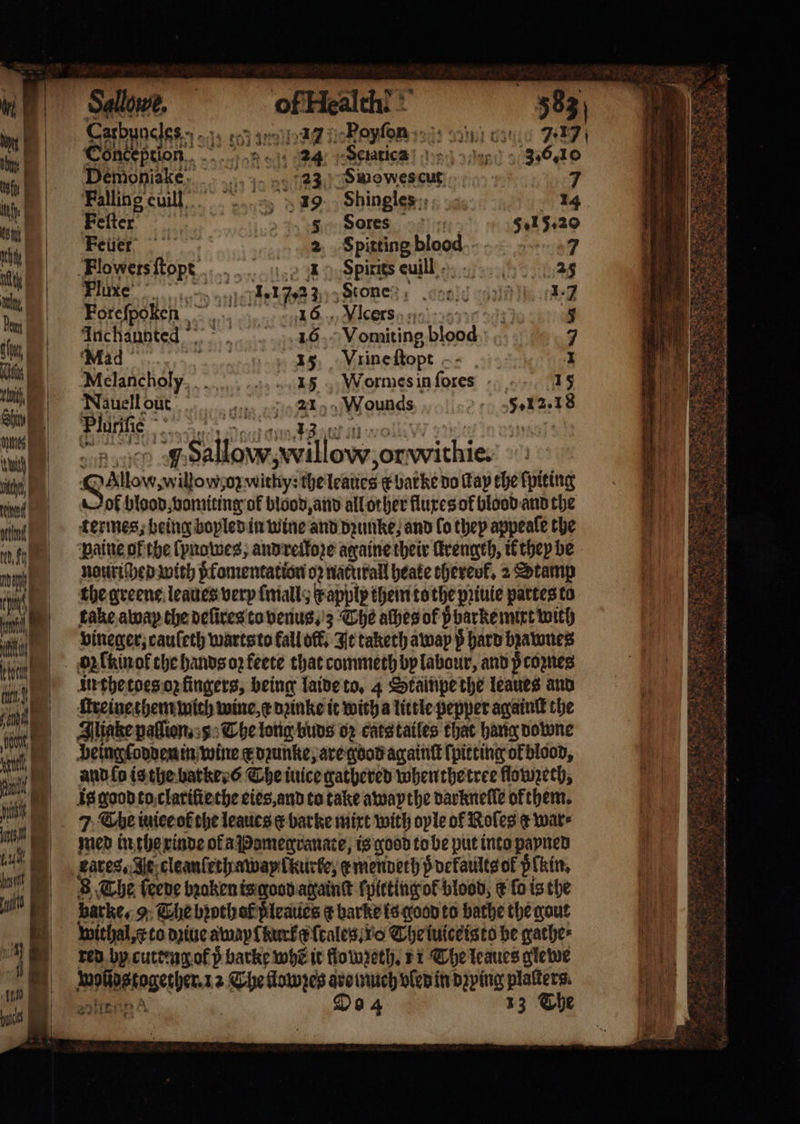 Sallowe. of Health. 583
Carbuncles. 17 Poyson 7.17
Conception. 24 Sciatica 3.6.10
Demoniake. 23 Swowes cut 7
Falling euill. 19 Shingles 14
Fester 5 Sores 5.15.20
Feuer 2 Spitting blood 7
Flowers stopt. 1 Spirits euill 25
Fluxe 1.17.23 Stone 1.7
Forespoken 16 Vlcers 5
Inchaunted 16 Vomiting blood 7
Mad 15 Vrine stopt 1
Melancholy. 15 Wormes in sores 15
Nauell out 21 Wounds 5.12.18
Plurisie 13
¶ Sallow, willow, or withie.
SAllow, willow, or withy: the leaues & barke do stay the spitting
of blood, vomiting of blood, and all other fluxes of blood and the
termes, being boyled in wine and drunke, and so they appease the
paine of the synowes, and restore againe their strength, if they be
nourished with yͤ fomentation or naturall heate thereof, 2 Stamp
the greene leaues very small, & apply them to the priuie partes to
take away the desires to venus, 3 The ashes of yͤ barke mixt with
vineger, causeth warts to fall off. It taketh away yͤ hard brawnes
or skin of the hands or feete that commeth by labour, and yͤ cornes
in the toes or fingers, being laide to, 4 Stampe the leaues and
streine them with wine, & drinke it with a little pepper against the
Iliake passion, 5 The long buds or cats tailes that hang downe
being sodden in wine & drunke, are good against spitting of blood,
and so is the barke, 6 The iuice gathered when the tree flowreth,
is good to clarifie the eies, and to take away the darknesse of them.
7. The iuice of the leaues & barke mixt with oyle of Roses & war-
med in the rinde of a Pomegranate, is good to be put into payned
eares. It cleanseth away skurfe, & mendeth yͤ defaults of yͤ skin,
8 The seede broken is good against spitting of blood, & so is the
barke. 9. The broth of yͤ leaues & barke is good to bathe the gout
withal, & to driue away skurf & scales, 10 The iuice is to be gathe-
red by cutting of yͤ barke whē it flowreth. 11 The leaues glewe
wounds together. 12 The flowres are much vsed in drying plasters.
Oo 4 13 The